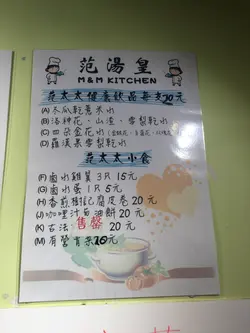 范湯皇
M&M KITCHEN
范太太健康飲品每支20元
(A) 木瓜乾薏米水
(B) 洛神花、山渣、雪梨乾水
(C) 四朵金花水
(D) 羅漢果雪梨乾水
范太太小食
(F) 鹵水雞翼3只15元
(G) 鹵水蛋1只5元
(H) 香煎獅子狗腐皮卷20元
(J) 咖哩汁石油餅20元
(K) 古法 售罄 20元
(M) 有營青菜10元